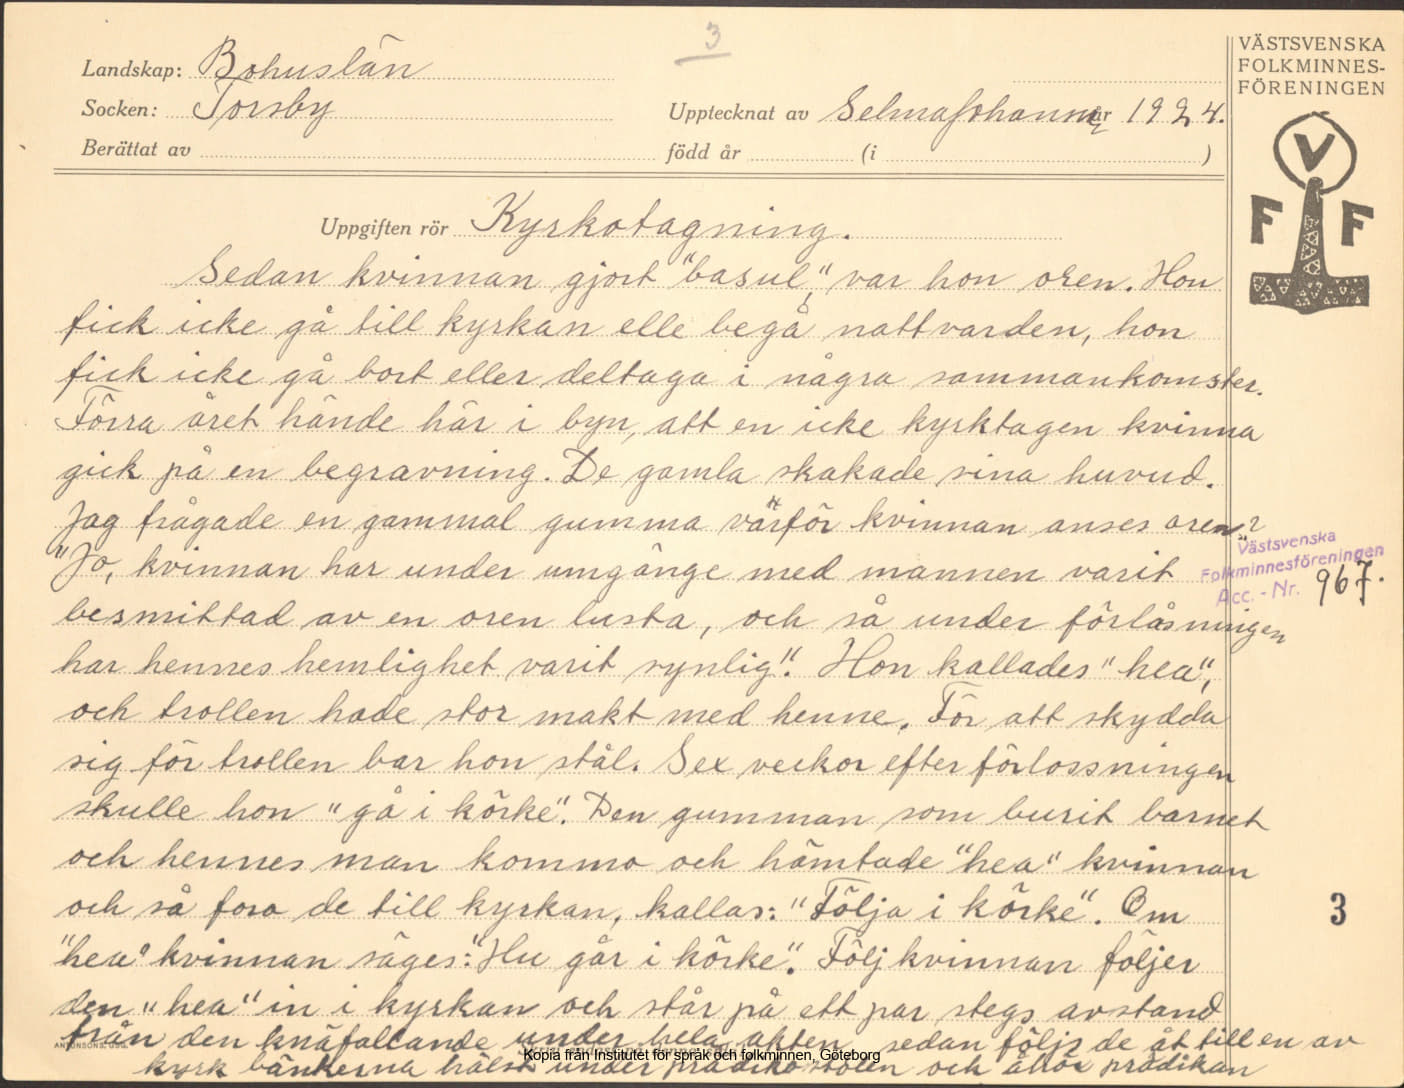 3
Landskap: Bohuslän
Socken: Torsby
Upptecknat av Selma Johanns år 1924.
Berättat av
född år (i )
VÄSTSVENSKA
FOLKMINNES-
FÖRENINGEN
V
F F
Uppgiften rör Kyrkotagning.
Sedan kvinnan gjort "basul", var hon oren. Hon
fick icke gå till kyrkan elle begå nattvarden, hon
fick icke gå bort eller deltaga i några sammankomster.
Förra året hände här i byn, att en icke kyrktagen kvinna
gick på en begravning. De gamla skakade sina huvud.
Jag frågade en gammal gumma varför kvinnan anses oren?
"Jo, kvinnan har under umgänge med mannen varit
besmittad av en oren lusta, och så under förlåsningen
har hennes hemlighet varit synlig". Hon kallades "hea",
och trollen hade stor makt med henne. För att skydda
sig för trollen bar hon stål. Sex veckor efter förlossningen
skulle hon "gå i körke". Den gumman som burit barnet
och hennes man kommo och hämtade "hea" kvinnan
och så foro de till kyrkan, kallas: "Följa i körke". Om
"hea" kvinnan säges: "Hu går i körke". Följkvinnan följer
den "hea" in i kyrkan och står på ett par stegs avstand
från den knäfallande under hela akten, sedan följs de åt till en av
kyrk bänkerna hälst under prädikostolen och åhör prädikan
Västsvenska
Folkminnesföreningen
Acc. - Nr. 967.
3
Kopia från Institutet för språk och folkminnen, Göteborg